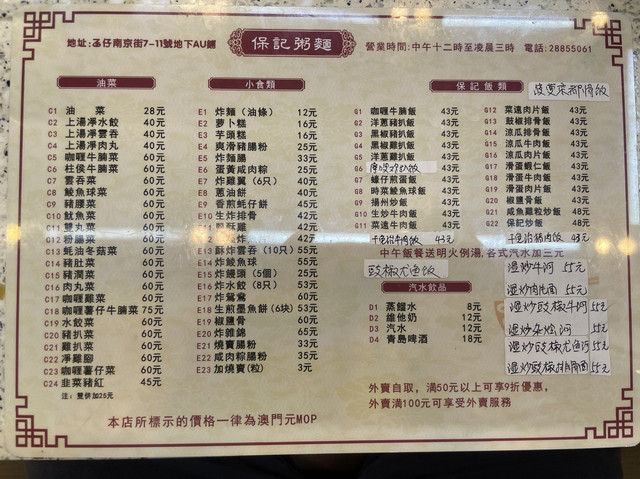 地址:氹仔南京街7-11號地下AU鋪
保記粥麵
營業時間:中午十二時至凌晨三時 電話:28855061
油菜
01 油 菜 28元
02 上湯凈水餃 40元
03 上湯凈雲吞 40元
04 上湯凈肉丸 40元
05 咖喱牛腩菜 60元
06 柱侯牛腩菜 60元
07 雲吞菜 60元
08 鯪魚球菜 60元
09 豬腰菜 60元
C10 魷魚菜 60元
C11 雙丸菜 60元
C12 粉腸菜 60元
C13 蚝油冬菇菜 60元
C14 豬肚菜 60元
C15 豬潤菜 60元
C16 肉丸菜 60元
C17 咖喱雞菜 60元
C18 咖喱薯仔牛腩菜 75元
C19 水餃菜 60元
C20 豬扒菜 60元
C21 雞扒菜 60元
C22 凈雞腳 60元
C23 咖喱薯仔菜 60元
C24 韭菜豬紅 45元
注：雙併加25元
小食類
E1 炸麵（油條） 12元
E2 蘿卜糕 16元
E3 芋頭糕 16元
E4 爽滑豬腸粉 25元
E5 炸麵腸 33元
E6 蛋黃咸肉粽 25元
E7 炸雞翼（6只） 40元
E8 蔥油餅 40元
E9 香煎蚝仔餅 50元
E10 生炸排骨 42元
E13 酥炸雲吞（10只） 55元
E14 炸鯪魚球 55元
E15 炸饅頭（5個） 25元
E16 炸水餃（8只） 53元
E17 炸鴛鴦 60元
E18 生煎墨魚餅（6块） 53元
E19 椒鹽骨 60元
E20 炸雜錦 65元
E21 燒賣腸粉 33元
E22 咸肉粽腸粉 35元
E23 加燒賣(粒) 3元
保記飯類
G1 咖喱牛腩飯 43元
G2 洋蔥豬扒飯 43元
G3 黑椒豬扒飯 43元
G4 黑椒雞扒飯 43元
G5 洋蔥雞扒飯 43元
G6 43元
G7 蠔仔煎蛋飯 43元
G8 時菜鯪魚球飯 43元
G9 揚州炒飯 43元
G10 生炒牛肉飯 43元
G11 菜遠牛肉飯 43元
干免治牛肉飯 43元
G12 菜遠肉片飯 43元
G13 豉椒排骨飯 43元
G14 涼瓜排骨飯 43元
G15 涼瓜牛肉飯 43元
G16 涼瓜肉片飯 43元
G17 滑蛋蝦仁飯 43元
G18 滑蛋牛肉飯 43元
G19 滑蛋肉片飯 43元
G20 椒鹽骨飯 43元
G21 咸魚雞粒炒飯 48元
G22 保記炒飯 48元
干免治豬肉飯 43元
中午飯餐送明火例湯,各式汽水加三元
豉椒尤魚飯
汽水飲品
D1 蒸餾水 8元
D2 維他奶 12元
D3 汽水 12元
D4 青島啤酒 18元
湿炒牛河 55元
湿炒肉片河 55元
湿炒豉椒牛河 55元
湿炒杂烩河 55元
湿炒豉椒尤魚河 55元
湿炒豉椒排骨河 55元
外賣自取，滿50元以上可享9折優惠，
外賣滿100元可享受外賣服務
本店所標示的價格一律為澳門元MOP